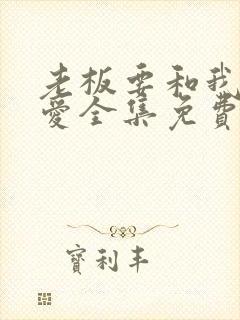 老板要和我
爱全集免费
寶利丰